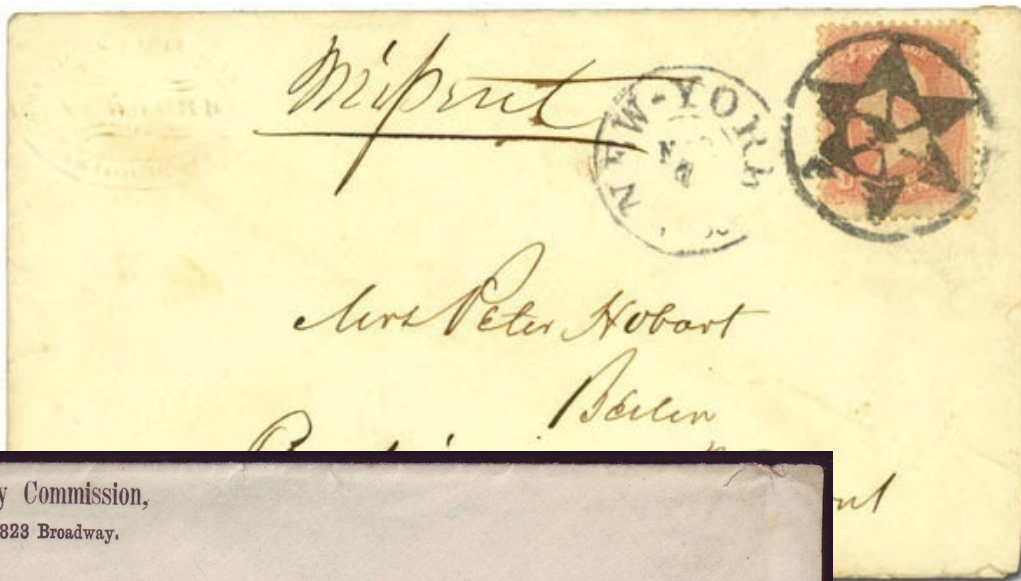 Missent
NEW-YORK
Mrs Peter Hobart
Berlin
y Commission,
823 Broadway.